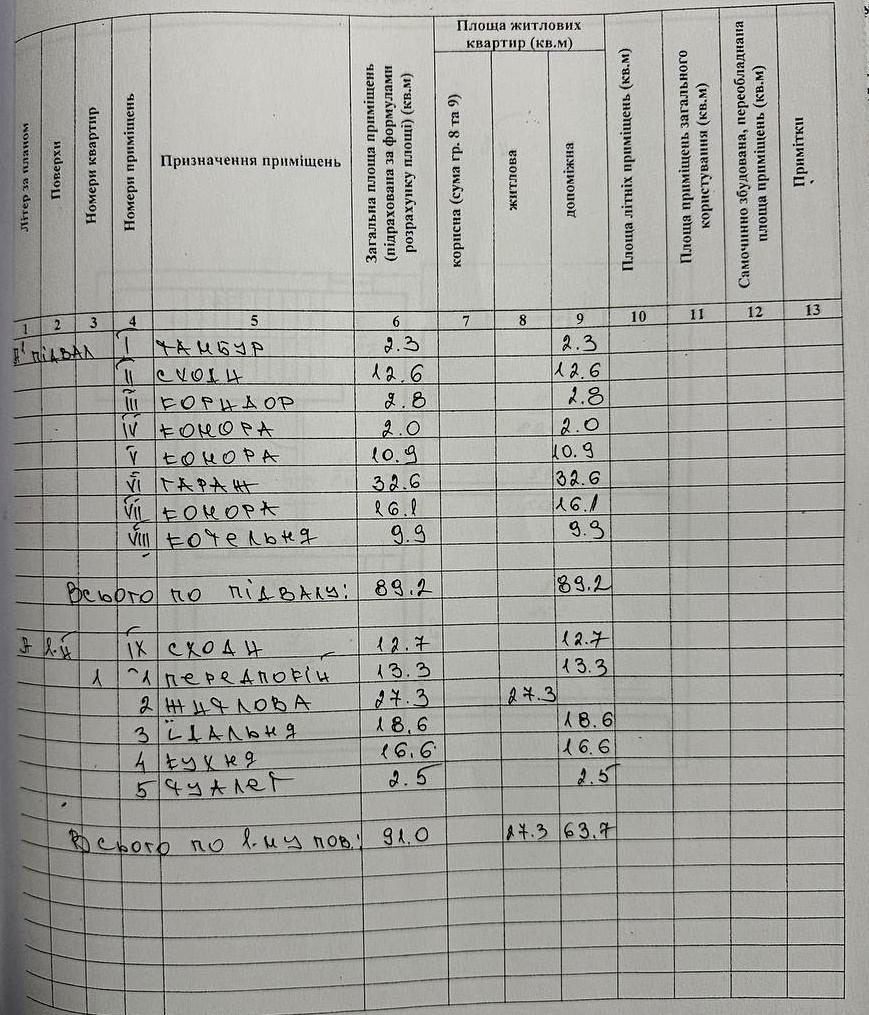 Літер за планом
Поверхи
Номери квартир
Номери приміщень
Призначення приміщень
Загальна площа приміщень (підрахована за формулами розрахунку площі) (кв.м)
Площа житлових квартир (кв.м)
корисна (сума гр. 8 та 9)
житлова
допоміжна
Площа літніх приміщень (кв.м)
Площа приміщень загального користування (кв.м)
Самочинно збудована, переобладнана площа приміщень (кв.м)
Примітки
1 2 3 4 5 6 7 8 9 10 11 12 13
підвал I тамбур 2.3 2.3
II сходи 12.6 12.6
III коридор 2.8 2.8
IV комора 2.0 2.0
V комора 10.9 10.9
VI гараж 32.6 32.6
VII комора 16.1 16.1
VIII котельня 9.9 9.9
Всього по підвалу: 89.2 89.2
1-й IX сходи 12.7 12.7
1 1 передпокій 13.3 13.3
2 житлова 27.3 27.3
3 їдальня 18.6 18.6
4 кухня 16.6 16.6
5 туалет 2.5 2.5
Всього по 1-му пов: 91.0 27.3 63.7